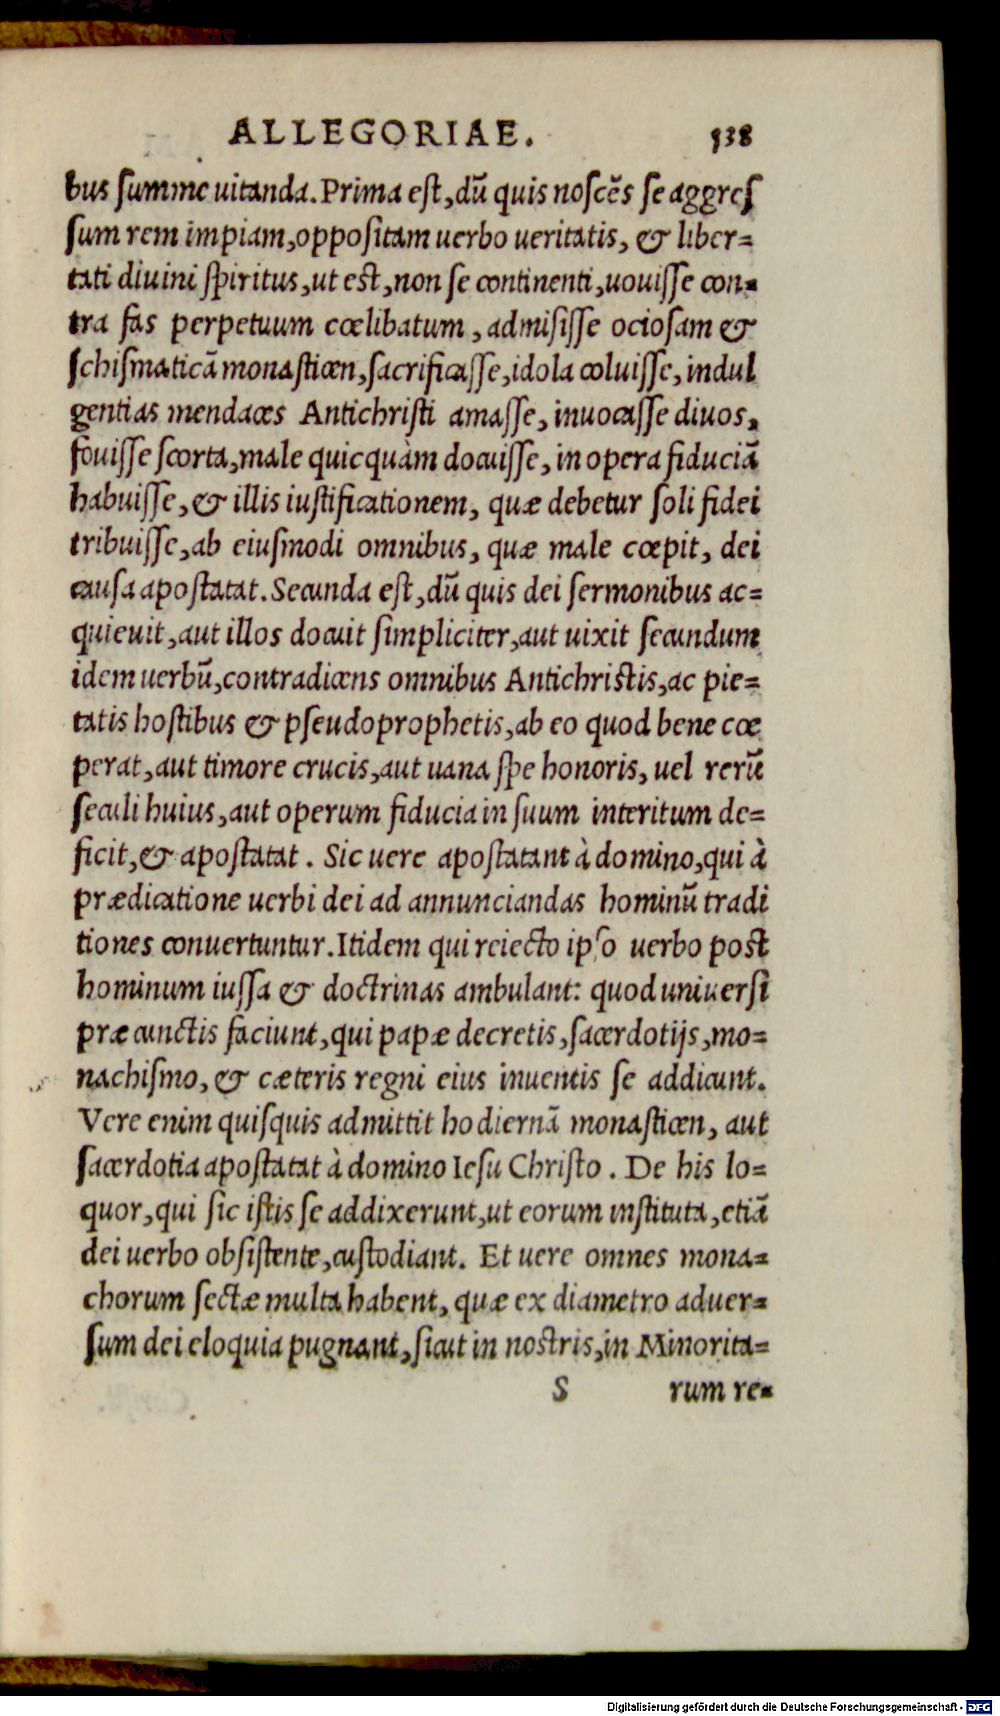 ALLEGORIAE. 538
bus ſumme uitanda. Prima eſt, dũ quis noſcẽs ſe aggreſ
ſum rem impiam, oppoſitam uerbo ueritatis, & liber=
tati diuini ſpiritus, ut est, non ſe continenti, uouiſſe con=
tra fas perpetuum cœlibatum, admiſiſſe ocioſam &
ſchiſmaticã monaſticen, ſacrificaſſe, idola coluiſſe, indul
gentias mendaces Antichriſti amaſſe, inuocaſſe diuos,
fouiſſe ſcorta, male quicquàm docuiſſe, in opera fiduciã
habuiſſe, & illis iuſtificationem, quæ debetur ſoli fidei
tribuiſſe, ab eiuſmodi omnibus, quæ male cœpit, dei
cauſa apoſtatat. Secunda eſt, dũ quis dei ſermonibus ac=
quieuit, aut illos docuit ſimpliciter, aut uixit ſecundum
idem uerbũ, contradicens omnibus Antichristis, ac pie=
tatis hoſtibus & pſeudoprophetis, ab eo quod bene cœ
perat, aut timore crucis, aut uana ſpe honoris, uel rerũ
ſeculi huius, aut operum fiducia in ſuum interitum de=
ficit, & apoſtatat. Sic uere apoſtatant à domino, qui à
prædicatione uerbi dei ad annunciandas hominũ tradi
tiones conuertuntur. Itidem qui reiecto ipſo uerbo post
hominum iuſſa & doctrinas ambulant: quod uniuerſi
præ cunctis faciunt, qui papæ decretis, ſacerdotijs, mo=
nachiſmo, & cæteris regni eius inuentis ſe addicunt.
Vere enim quiſquis admittit hodiernã monaſticen, aut
ſacerdotia apoſtatat à domino Ieſu Chriſto. De his lo=
quor, qui ſic iſtis ſe addixerunt, ut eorum inſtituta, etiã
dei uerbo obſiſtente, cuſtodiant. Et uere omnes mona=
chorum ſectæ multa habent, quæ ex diametro aduer=
ſum dei eloquia pugnant, ſicut in nostris, in Minorita=
S rum re=
Digitalisierung gefördert durch die Deutsche Forschungsgemeinschaft - DFG